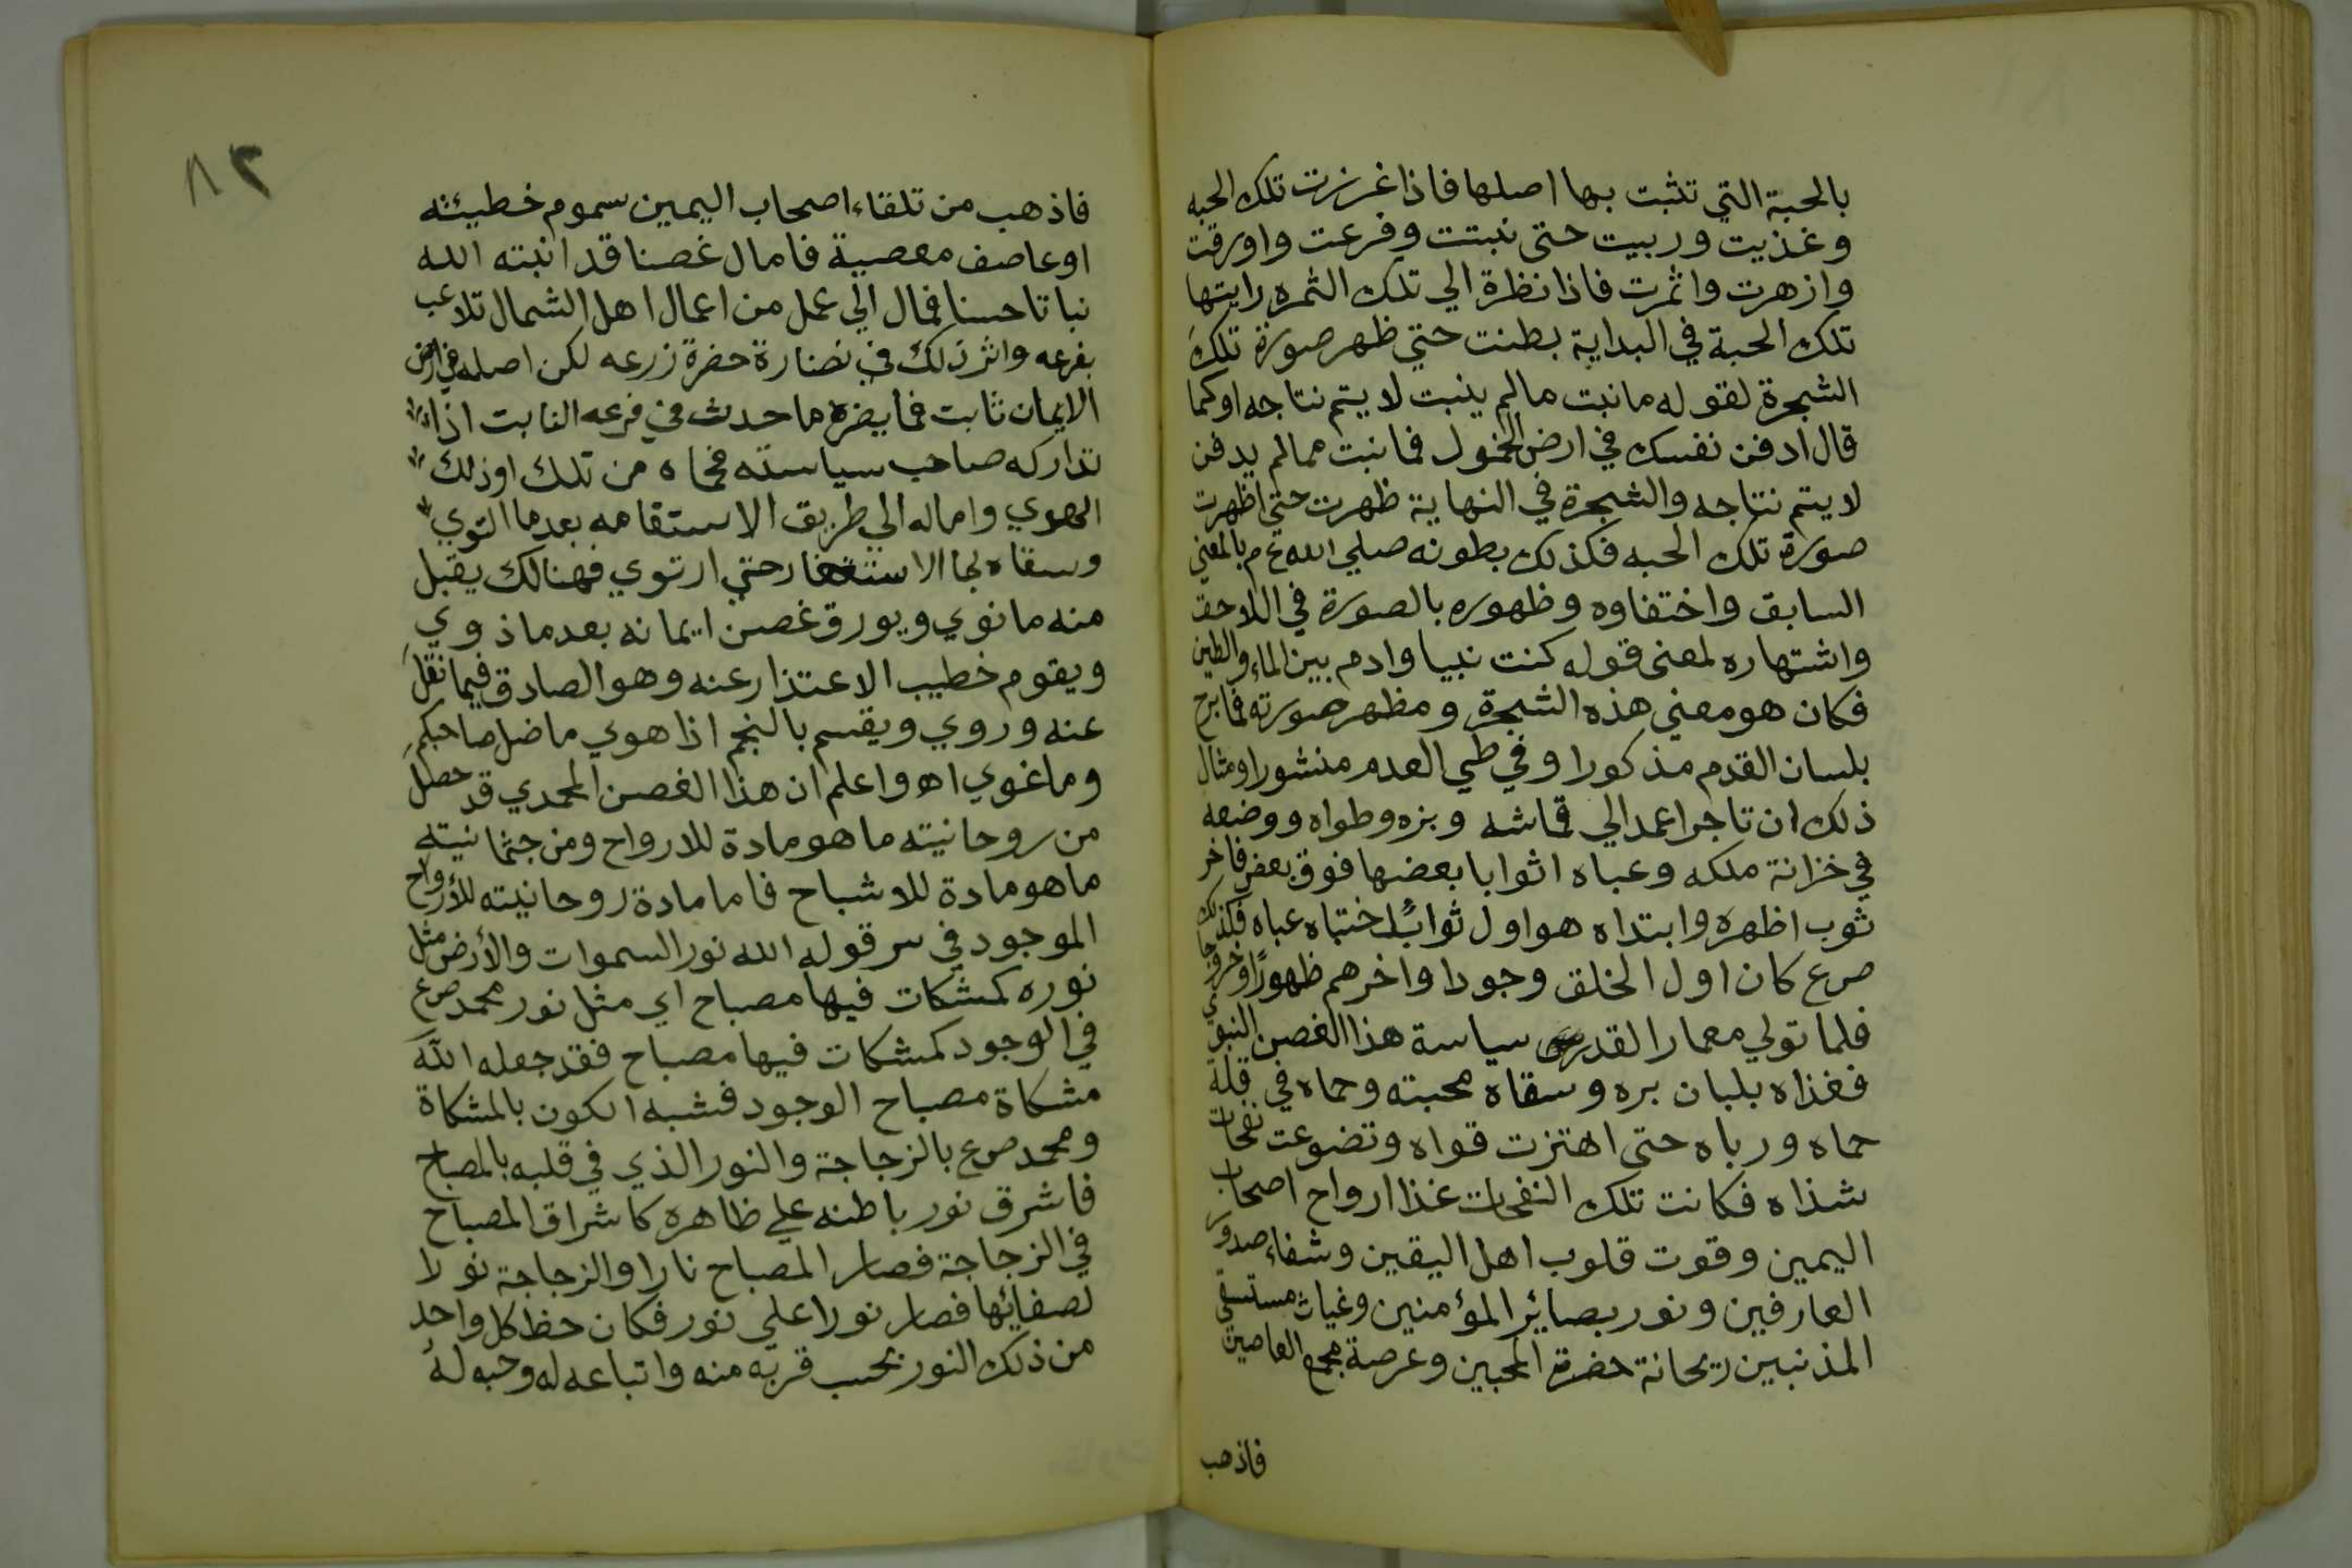 بالحبة التي تثبت بها اصلها فاذا غرزت تلك الحبه
وغذيت وربيت حتى نبتت وفرعت واورقت
وازهرت واثمرت فاذا نظرة الي تلك الثمره رايتها
تلك الحبة في البداية بطنت حتي ظهر صورة تلك
الشجرة لقوله ما نبت مالم ينبت لا يتم نتاجه اوكما
قال ادفن نفسك في ارض الخمول فما نبت ممالم يدفن
لا يتم نتاجه والشجرة في النهاية ظهرت حتي اظهرت
صورة تلك الحبه فكذلك بطونه صلي الله ع م بالمعني
السابق واختفاوه وظهوره بالصورة في اللاحق
واشتهاره لمعنى قوله كنت نبيا وادم بين الماء والطين
فكان هو معني هذه الشجرة ومظهر صورته فما برح
بلسان القدم مذكورا وفي طي العدم منشورا ومثال
ذلك ان تاجرا عمد الي قماشه وبزه وطواه ووضعه
في خزانة ملكه وعباه اثوابا بعضها فوق بعض فاخر
ثوب اظهره وابتداه هو اول ثواب خباه عباه فكذلك
صرع كان اول الخلق وجودا واخرهم ظهورًا وخروجا
فلما تولي معمار القدر سياسة هذا الغصن النبوي
فغذاه بلبان بره وسقاه محبته وحماه في قلة
حماه ورباه حتى اهتزت قواه وتضوعت نفحات
شذاه فكانت تلك النفحات غذا ارواح اصحاب
اليمين وقوت قلوب اهل اليقين وشفاء صدور
العارفين ونور بصائر المؤمنين وغياث مستسقي
المذنبين ريحانة حضرة المحبين وعرصة مجمع العاصين
فاذهب
٨٢
فاذهب من تلقاء اصحاب اليمين سموم خطيئته
او عاصف معصية فامال غصنا قد انبته الله
نباتا حسنا فمال الي عمل من اعمال اهل الشمال تلاعب
بفرعه واثر ذلك في نضارة حضرة زرعه لكن اصله في ارض
الايمان ثابت فما يضره ما حدث في فرعه النابت اذا
تداركه صاحب سياسته فحماه من تلك اوذلك
الهوي واماله الي طريق الاستقامه بعدما التوي
وسقاه بما الاستغفار حتي ارتوي فهنالك يقبل
منه ما نوي ويورق غصن ايمانه بعدما ذوي
ويقوم خطيب الاعتذار عنه وهو الصادق فيما نقل
عنه وروي ويقسم بالنجم اذا هوي ما ضل صاحبكم
وما غوي اه واعلم ان هذا الغصن المحمدي قد حصل
من روحانيته ما هو مادة للارواح ومن جثمانيته
ما هو مادة للاشباح فاما مادة روحانيته للأرواح
الموجود في سر قوله الله نور السموات والأرض مثل
نوره كمشكات فيها مصباح اي مثل نور محمد صرع
في الوجود كمشكات فيها مصباح فقد جعله الله
مشكاة مصباح الوجود فشبه الكون بالمشكاة
ومحمد صرع بالزجاجة والنور الذي في قلبه بالمصباح
فاشرق نور باطنه علي ظاهره كاشراق المصباح
في الزجاجة فصار المصباح نارا والزجاجة نورا
لصفائها فصار نورا علي نور فكان حظ كل واحد
من ذلك النور بحسب قربه منه واتباعه له وحبه له